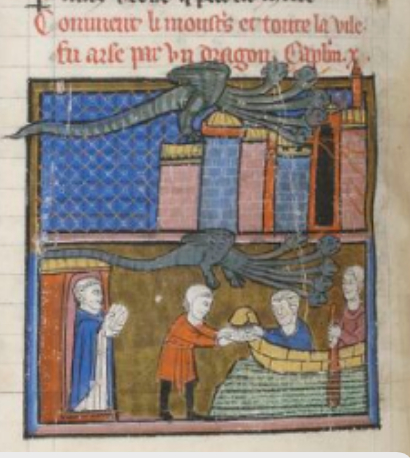 Conment li moust's et toute la vile.
fu arse par vn dragon. Caplm. x